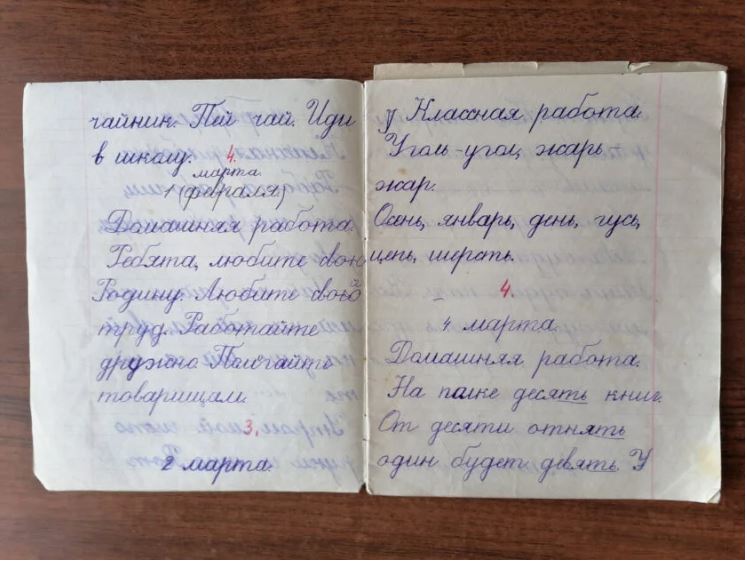 чайник. Пей чай. Иди
в школу. 4.
марта
1 (февраля)
Домашняя работа.
Ребята, любите свою
Родину. Любите свой
труд. Работайте
дружно. Помогайте
товарищам.
3.
2 марта.
у Классная работа.
Уголь-угол, жарь -
жар.
Осень, январь, день, гусь,
цепь, шерсть.
4.
4 марта.
Домашняя работа.
На полке десять книг.
От десяти отнять
один будет девять. У